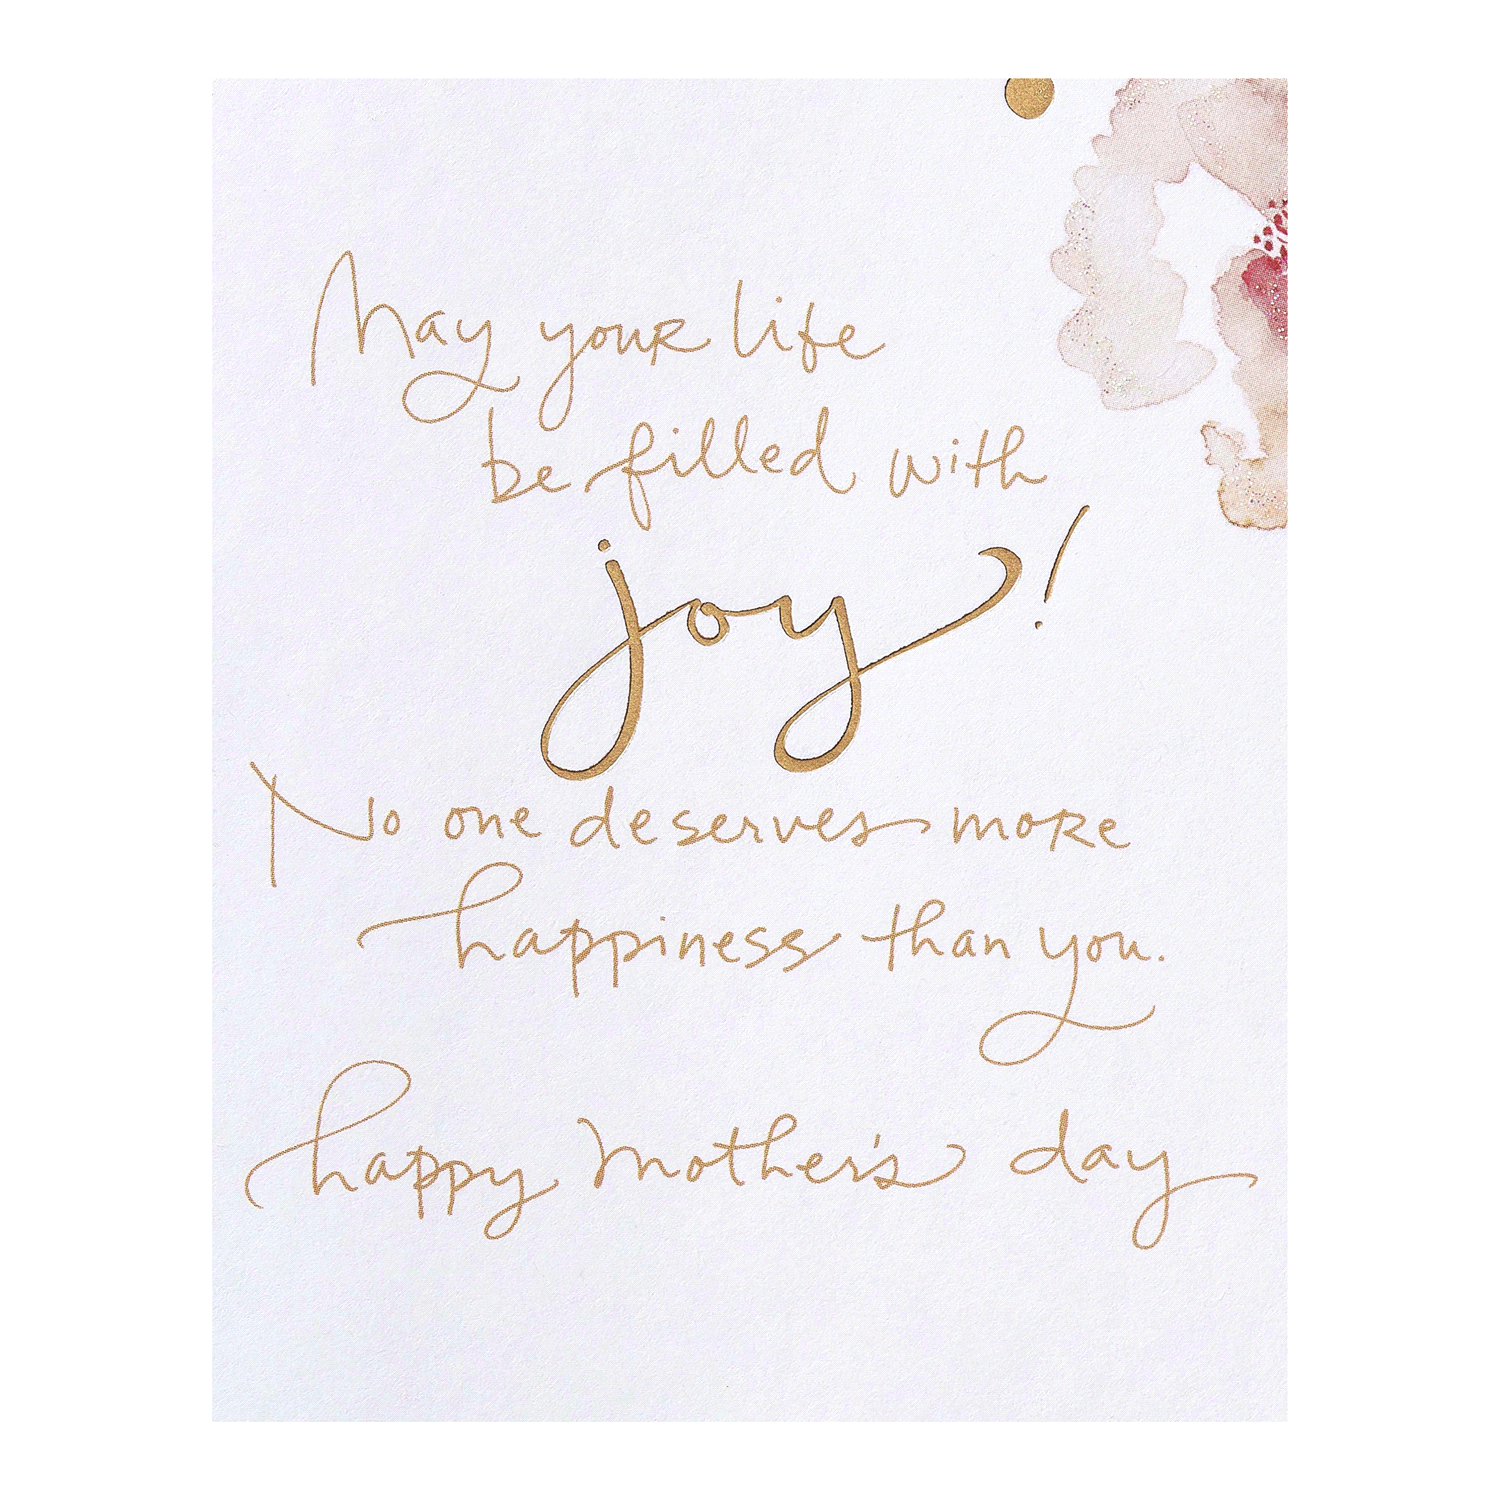 May your life
be filled with
joy!
No one deserves more
happiness than you.
happy mother's day